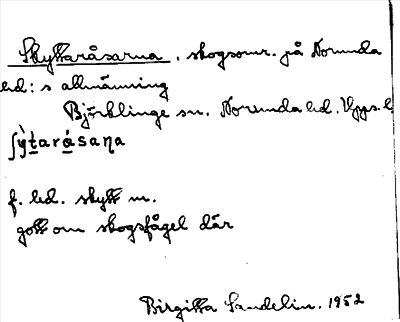 Skyttaråsarna, skogsomr. på Norunda
hd:s allmänning
Björklinge sn. Norunda hd. Upps. l.
ʃỳt̠arå̠saṇa
f. led. skytt m.
gott om skogsfågel där
Birgitta Sandelin. 1952